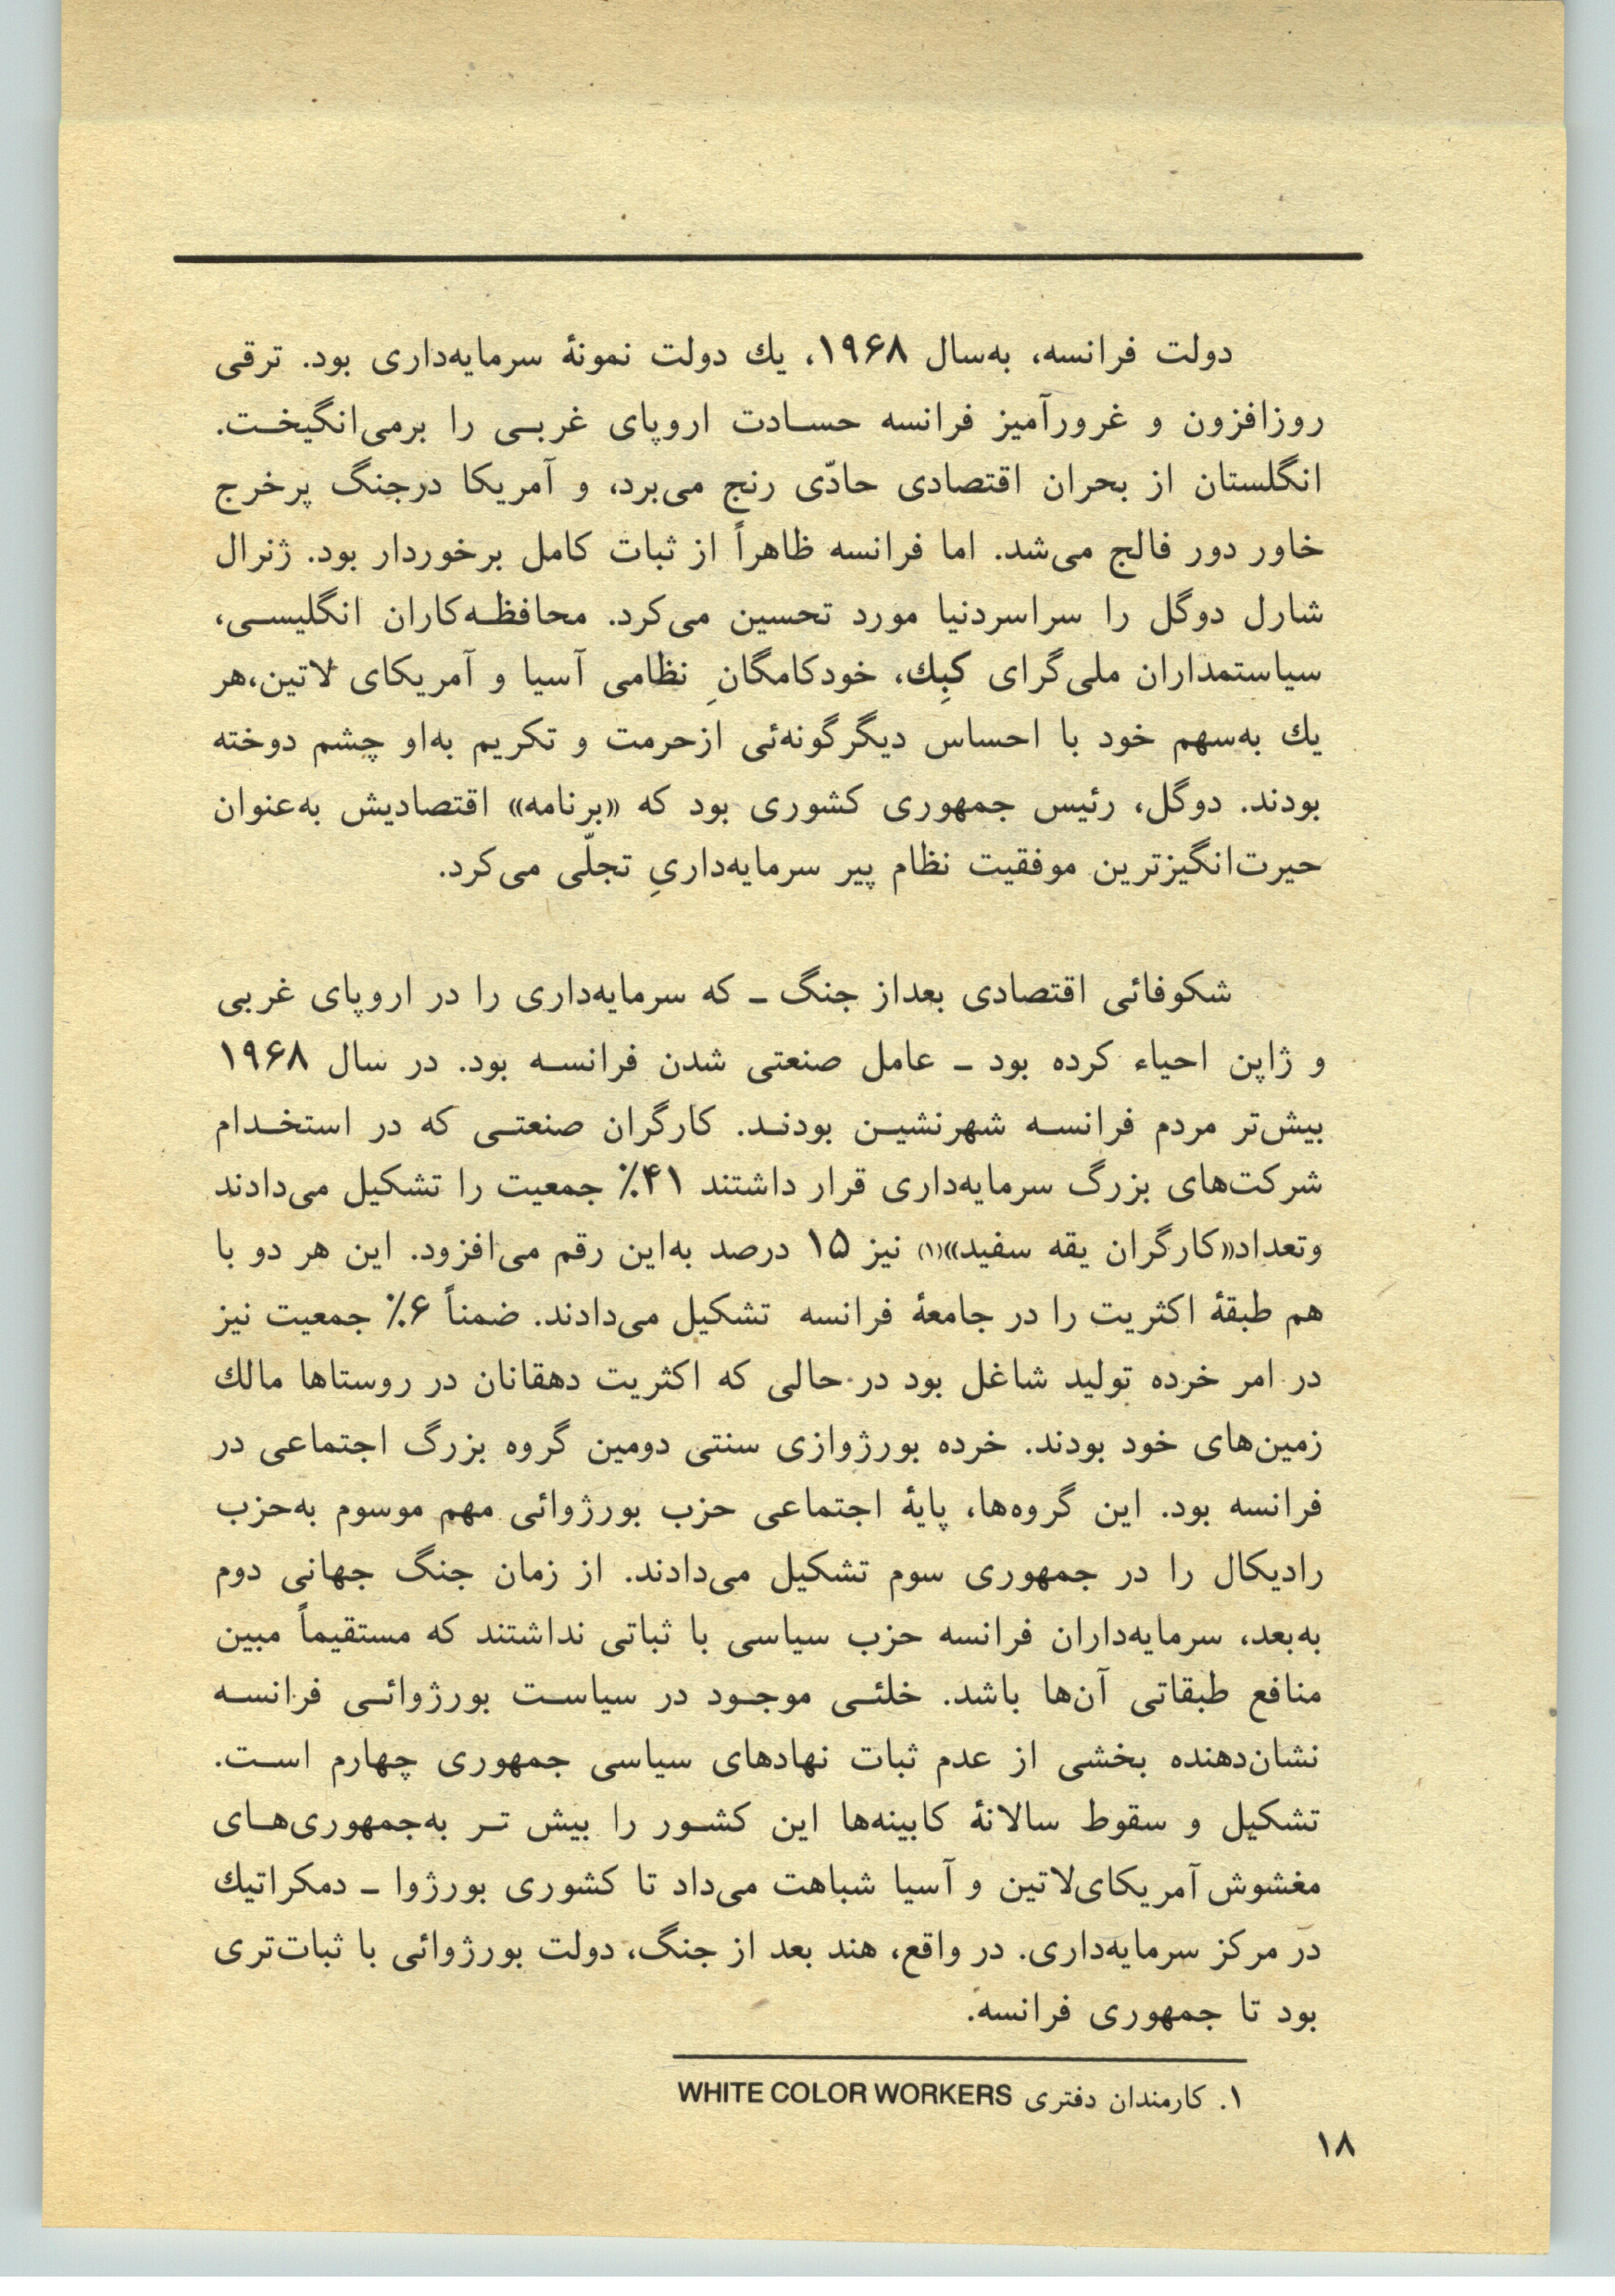 دولت فرانسه، به‌سال ۱۹۶۸، یك دولت نمونۀ سرمایه‌داری بود. ترقی
روزافزون و غرورآمیز فرانسه حسادت اروپای غربی را برمی‌انگیخت.
انگلستان از بحران اقتصادی حادّی رنج می‌برد، و آمریکا درجنگ پرخرج
خاور دور فالج می‌شد. اما فرانسه ظاهراً از ثبات کامل برخوردار بود. ژنرال
شارل دوگل را سراسردنیا مورد تحسین می‌کرد. محافظه‌کاران انگلیسی،
سیاستمداران ملی‌گرای کبِك، خودکامگانِ نظامی آسیا و آمریکای لاتین،هر
یك به‌سهم خود با احساس دیگرگونه‌ئی ازحرمت و تکریم به‌او چشم دوخته
بودند. دوگل، رئیس جمهوری کشوری بود که «برنامه» اقتصادیش به‌عنوان
حیرت‌انگیزترین موفقیت نظام پیر سرمایه‌داریِ تجلّی می‌کرد.
شکوفائی اقتصادی بعداز جنگ ـ که سرمایه‌داری را در اروپای غربی
و ژاپن احیاء کرده بود ـ عامل صنعتی شدن فرانسه بود. در سال ۱۹۶۸
بیش‌تر مردم فرانسه شهرنشین بودند. کارگران صنعتی که در استخدام
شرکت‌های بزرگ سرمایه‌داری قرار داشتند ۴۱٪ جمعیت را تشکیل می‌دادند
وتعداد«کارگران یقه سفید»(۱) نیز ۱۵ درصد به‌این رقم می‌افزود. این هر دو با
هم طبقۀ اکثریت را در جامعۀ فرانسه تشکیل می‌دادند. ضمناً ۶٪ جمعیت نیز
در امر خرده تولید شاغل بود در حالی که اکثریت دهقانان در روستاها مالك
زمین‌های خود بودند. خرده بورژوازی سنتی دومین گروه بزرگ اجتماعی در
فرانسه بود. این گروه‌ها، پایۀ اجتماعی حزب بورژوائی مهم موسوم به‌حزب
رادیکال را در جمهوری سوم تشکیل می‌دادند. از زمان جنگ جهانی دوم
به‌بعد، سرمایه‌داران فرانسه حزب سیاسی با ثباتی نداشتند که مستقیماً مبین
منافع طبقاتی آن‌ها باشد. خلئی موجود در سیاست بورژوائی فرانسه
نشان‌دهنده بخشی از عدم ثبات نهادهای سیاسی جمهوری چهارم است.
تشکیل و سقوط سالانۀ کابینه‌ها این کشور را بیش تر به‌جمهوری‌های
مغشوش آمریکای‌لاتین و آسیا شباهت می‌داد تا کشوری بورژوا ـ دمکراتیك
در مرکز سرمایه‌داری. در واقع، هند بعد از جنگ، دولت بورژوائی با ثبات‌تری
بود تا جمهوری فرانسه.
۱. کارمندان دفتری WHITE COLOR WORKERS
۱۸